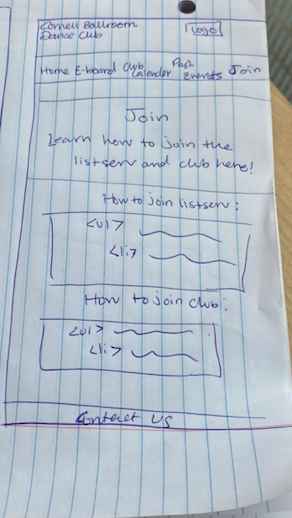 Cornell Ballroom
Dance Club
Logo
Home E-board Club Calender Past Events Join
Join
Learn how to join the
listserv and club here!
How to join listserv:
<ul>
<li>
How to join club:
<ul>
<li>
Contact Us